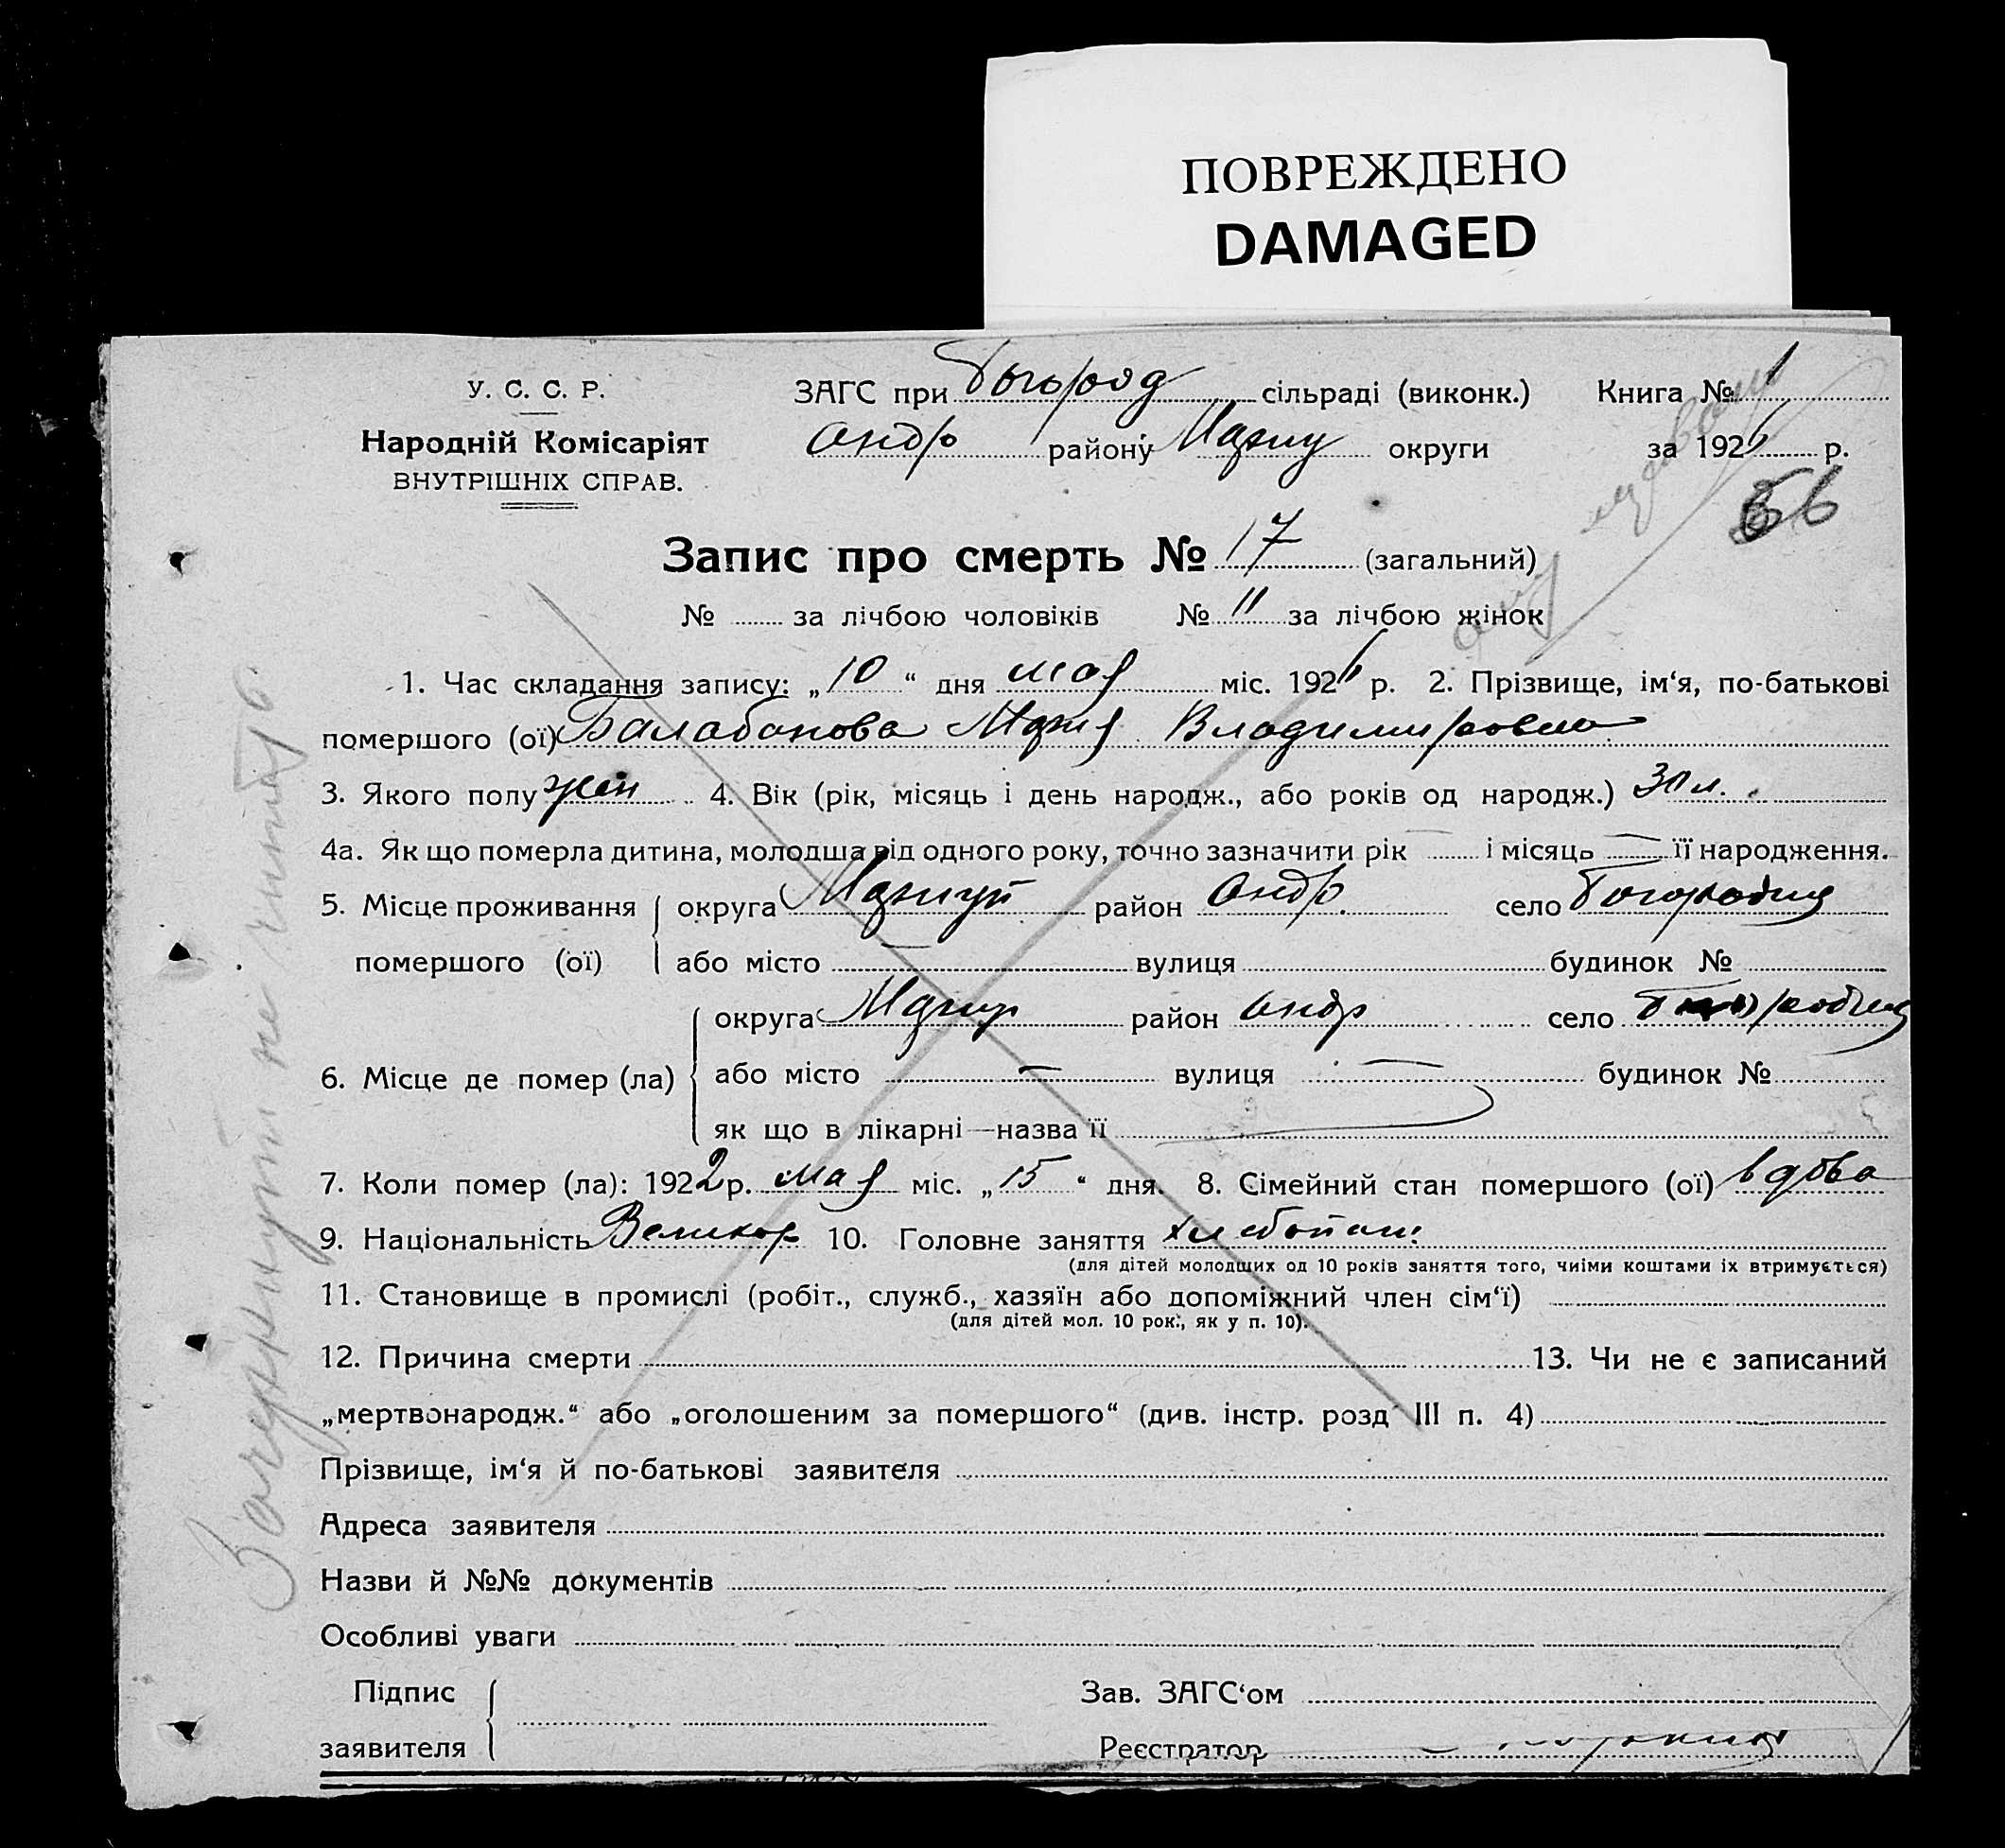 ПОВРЕЖДЕНО
DAMAGED
У. С. С. Р. ЗАГС при Богород сільраді (виконк.) Книга № 1
Народній Комісаріят Андр району Мариу округи за 1926 р.
ВНУТРІШНІХ СПРАВ.
66
Запис про смерть № 17 (загальний)
№ за лічбою чоловіків № 11 за лічбою жінок
1. Час складання запису: „10“ дня мая міс. 1926 р. 2. Прізвище, ім‘я, по-батькові
помершого (ої) Балабанова Мария Владимировна
3. Якого полу жен 4. Вік (рік, місяць і день народж., або років од народж.) 30 л.
4а. Як що померла дитина, молодша від одного року, точно зазначити рік — і місяць — її народження.
5. Місце проживання округа Мариуп район Андр. село Богородич
помершого (ої) або місто — вулиця будинок №
округа Мариуп район Андр село
6. Місце де помер (ла) або місто — вулиця — будинок №
як що в лікарні—назва її
7. Коли помер (ла): 1922 р. мая міс. „15“ дня. 8. Сімейний стан помершого (ої) вдова
9. Національність Великор 10. Головне заняття хлебопаш.
(для дітей молодших од 10 років заняття того, чиїми коштами їх втримується)
11. Становище в промислі (робіт., служб., хазяїн або допоміжний член сім‘ї)
(для дітей мол. 10 рок., як у п. 10).
12. Причина смерти 13. Чи не є записаний
„мертвонародж.“ або „оголошеним за помершого“ (див. інстр. розд III п. 4)
Прізвище, ім‘я й по-батькові заявителя
Адреса заявителя
Назви й №№ документів
Особливі уваги
Підпис Зав. ЗАГС‘ом
заявителя Реєстратор